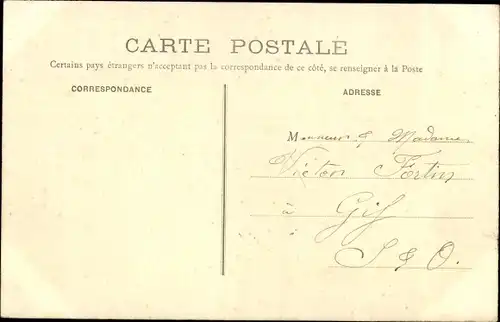 CARTE POSTALE
Certains pays étrangers n'acceptant pas la correspondance de ce côté, se renseigner à la Poste
CORRESPONDANCE
ADRESSE
Monsieur & Madame
Victor Fortin
à Gif
S & O.